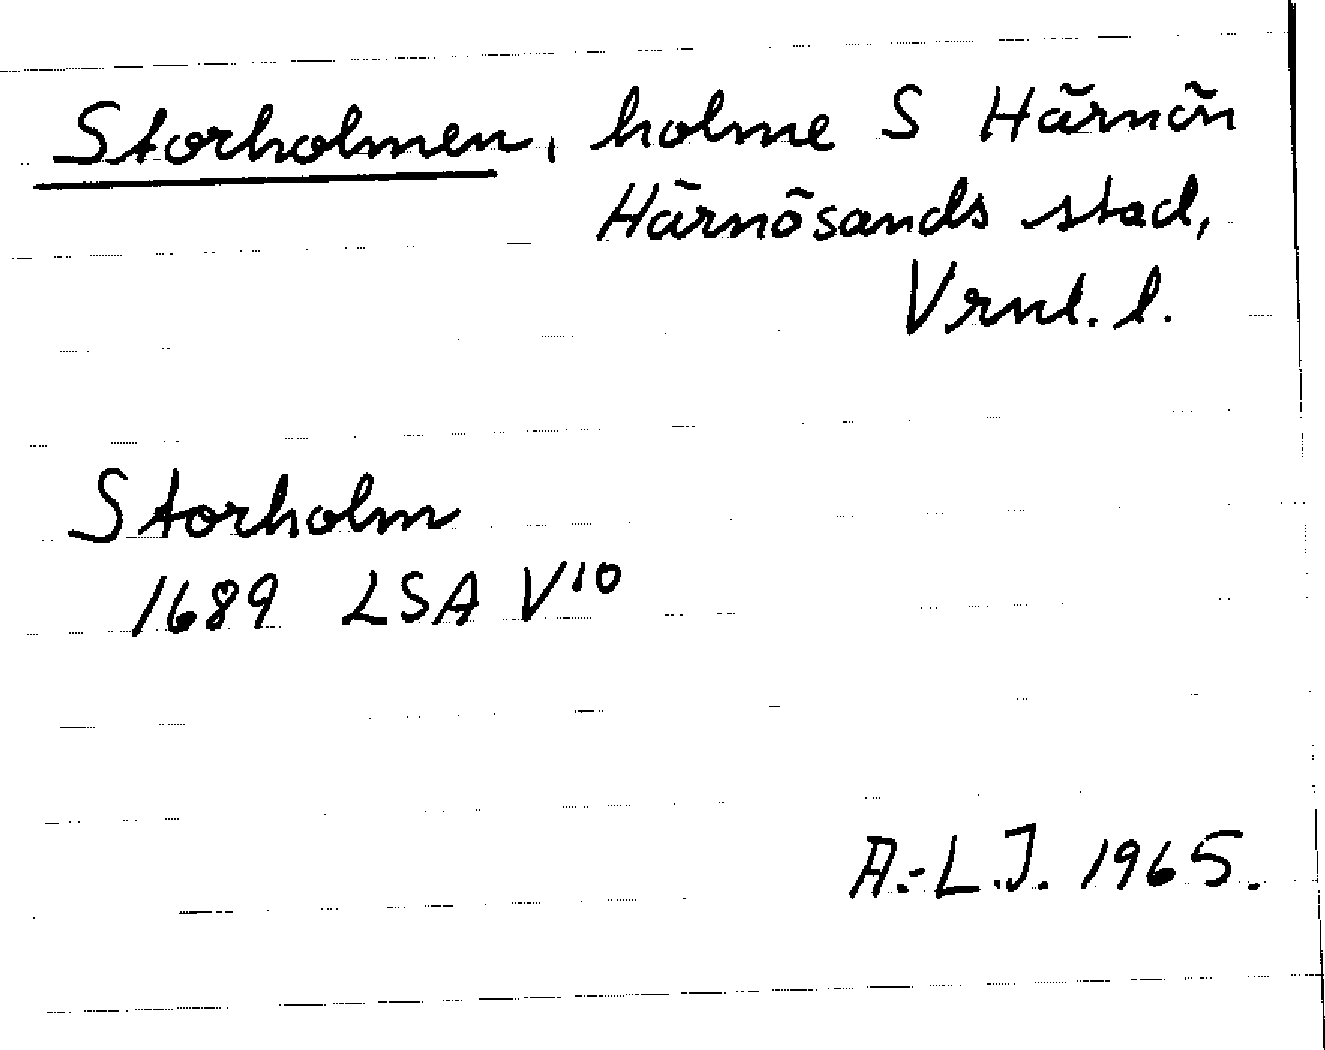 Storholmen, holme S Härnön
Härnösands stad,
Vrnl. l.
Storholm
1689 LSA V10
A.-L.J. 1965.